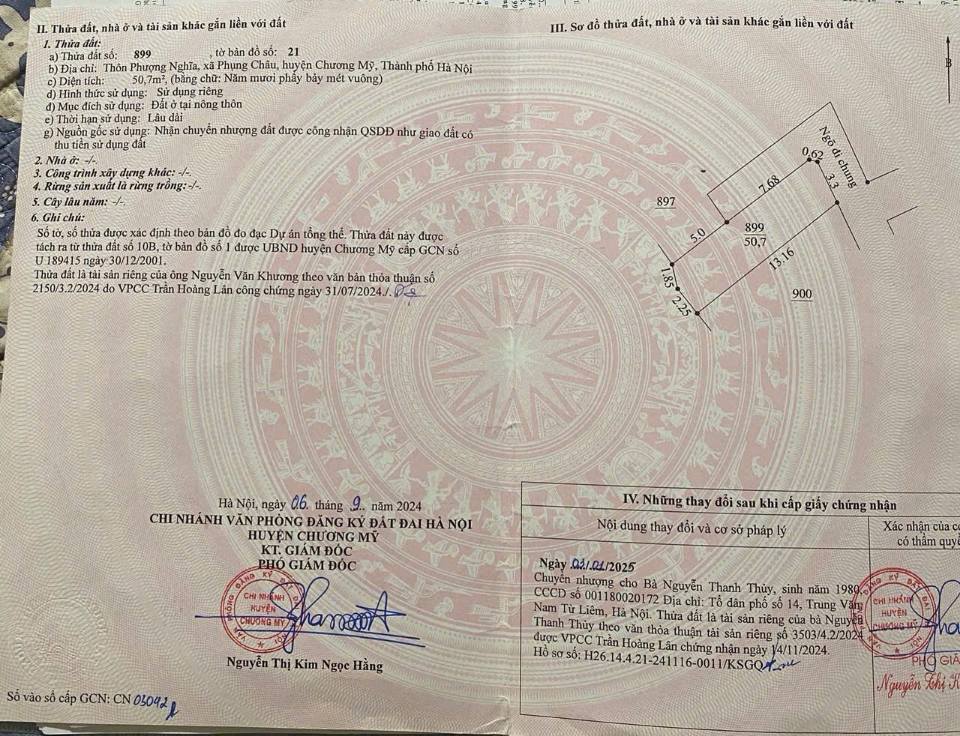 II. Thửa đất, nhà ở và tài sản khác gắn liền với đất
1. Thửa đất:
a) Thửa đất số: 899 , tờ bản đồ số: 21
b) Địa chỉ: Thôn Phượng Nghĩa, xã Phụng Châu, huyện Chương Mỹ, Thành phố Hà Nội
c) Diện tích: 50,7m², (bằng chữ: Năm mươi phẩy bảy mét vuông)
d) Hình thức sử dụng: Sử dụng riêng
đ) Mục đích sử dụng: Đất ở tại nông thôn
e) Thời hạn sử dụng: Lâu dài
g) Nguồn gốc sử dụng: Nhận chuyển nhượng đất được công nhận QSDĐ như giao đất có
thu tiền sử dụng đất
2. Nhà ở: -/-.
3. Công trình xây dựng khác: -/-.
4. Rừng sản xuất là rừng trồng: -/-.
5. Cây lâu năm: -/-.
6. Ghi chú:
Số tờ, số thửa được xác định theo bản đồ đo đạc Dự án tổng thể. Thửa đất này được
tách ra từ thửa đất số 10B, tờ bản đồ số 1 được UBND huyện Chương Mỹ cấp GCN số
U 189415 ngày 30/12/2001.
Thửa đất là tài sản riêng của ông Nguyễn Văn Khương theo văn bản thỏa thuận số
2150/3.2/2024 do VPCC Trần Hoàng Lân công chứng ngày 31/07/2024./.
Hà Nội, ngày 06 tháng 9. năm 2024
CHI NHÁNH VĂN PHÒNG ĐĂNG KÝ ĐẤT ĐAI HÀ NỘI
HUYỆN CHƯƠNG MỸ
KT. GIÁM ĐỐC
PHÓ GIÁM ĐỐC
VĂN PHÒNG ĐĂNG KÝ ĐẤT ĐAI
CHI NHÁNH
HUYỆN
CHƯƠNG MỸ
Nguyễn Thị Kim Ngọc Hằng
Số vào sổ cấp GCN: CN 03042
III. Sơ đồ thửa đất, nhà ở và tài sản khác gắn liền với đất
B
Ngõ đi chung
0,62
3.3
7.68
897
899
50,7
5.0
13.16
1.85
2.25
900
IV. Những thay đổi sau khi cấp giấy chứng nhận
Nội dung thay đổi và cơ sở pháp lý
Xác nhận của c
có thẩm quyề
Ngày 03/01/2025
Chuyển nhượng cho Bà Nguyễn Thanh Thủy, sinh năm 1980,
CCCD số 001180020172 Địa chỉ: Tổ dân phố số 14, Trung Văn,
Nam Từ Liêm, Hà Nội. Thửa đất là tài sản riêng của bà Nguyễn
Thanh Thủy theo văn thỏa thuận tài sản riêng số 3503/4.2/2024
được VPCC Trần Hoàng Lân chứng nhận ngày 14/11/2024.
Hồ sơ số: H26.14.4.21-241116-0011/KSGQ
CHI NHÁNH
HUYỆN
CHƯƠNG MỸ
PHÓ GIÁ
Nguyễn Thị K